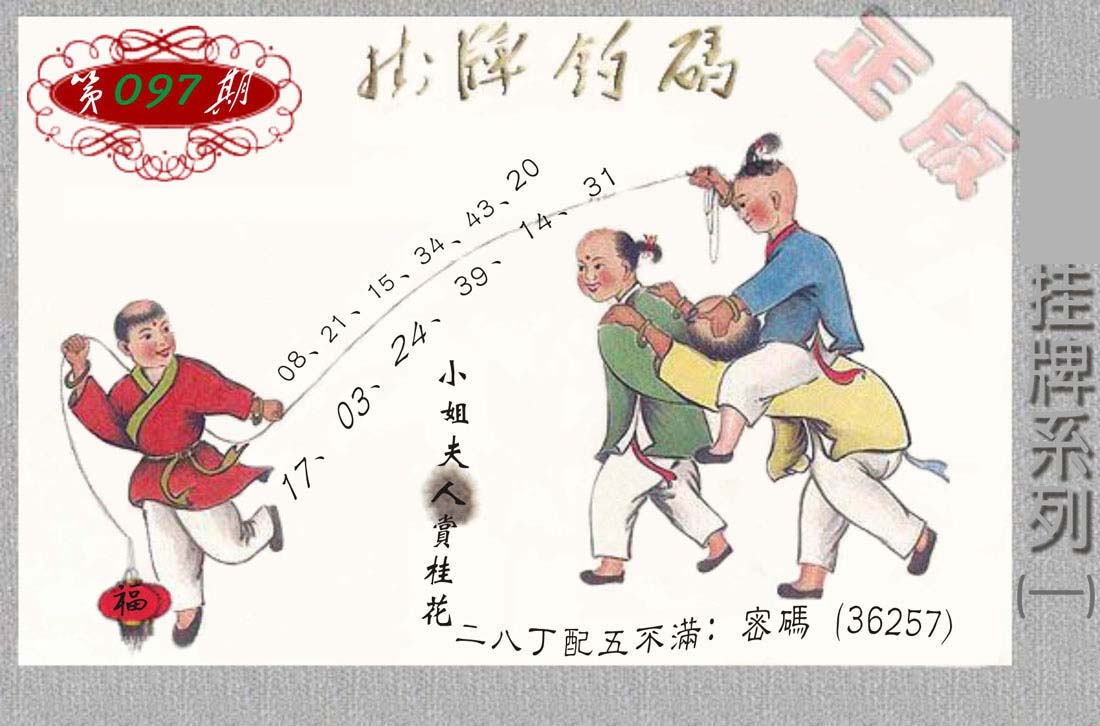 第097期
掛牌釣碼
正版
08、21、15、34、43、20
17、03、24、39、14、31
小姐夫人賞桂花
福
二八丁配五不滿：密碼（36257）
挂牌系列(一)